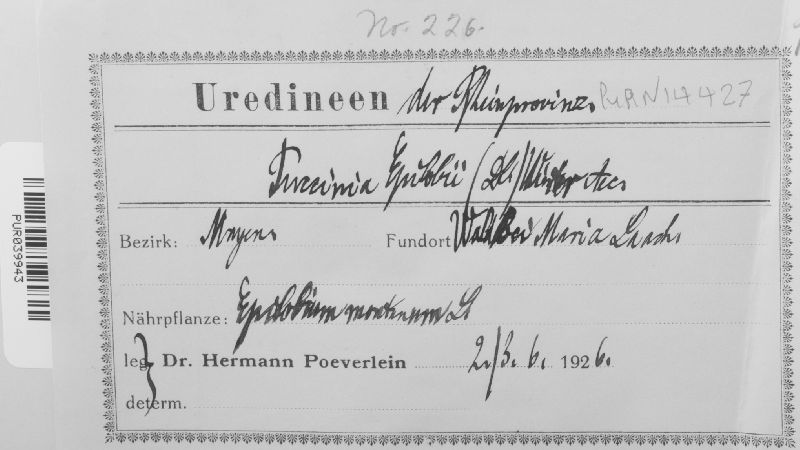 No. 226.
Uredineen der Rheinprovinz. PURN14427
Puccinia Epilobii (DC)
Bezirk: Mayen. Fundort Wald bei Maria Laach.
Nährpflanze: Epilobium montanum L
leg. Dr. Hermann Poeverlein 2./3. 6. 1926.
determ.
PUR039943